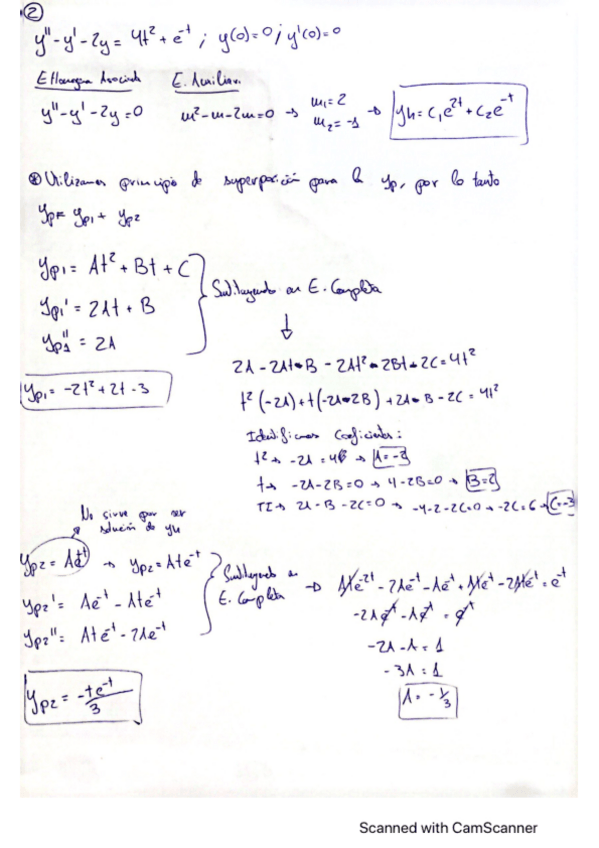 ②
y'' - y' - 2y = 4t² + e⁻ᵗ ; y(0)=0 ; y'(0)=0
E. Homogenea Asociada E. Auxiliar
y'' - y' - 2y = 0 m² - m - 2m = 0 → m₁ = 2 m₂ = -1 → yh = c₁e²ᵗ + c₂e⁻ᵗ
⊛ Utilizamos principio de superposición para la yp, por lo tanto
yp = yp1 + yp2
yp1 = At² + Bt + C
yp1' = 2At + B
yp1'' = 2A
Sustituyendo en E. Completa
↓
2A - 2At - B - 2At² - 2Bt - 2C = 4t²
yp1 = -2t² + 2t - 3
t²(-2A) + t(-2A - 2B) + 2A - B - 2C = 4t²
Identificamos Coeficientes:
t² → -2A = 4 → A = -2
t → -2A - 2B = 0 → 4 - 2B = 0 → B = 2
TI → 2A - B - 2C = 0 → -4 - 2 - 2C = 0 → -2C = 6 → C = -3
No sirve por ser
solución de yh
yp2 = Ae⁻ᵗ → yp2 = Ate⁻ᵗ
yp2' = Ae⁻ᵗ - Ate⁻ᵗ
yp2'' = Ate⁻ᵗ - 2Ae⁻ᵗ
Sustituyendo en
E. Completa
→ Ate⁻ᵗ - 2Ae⁻ᵗ - Ae⁻ᵗ + Ate⁻ᵗ - 2Ate⁻ᵗ = e⁻ᵗ
-2Ae⁻ᵗ - Ae⁻ᵗ = e⁻ᵗ
-2A - A = 1
-3A = 1
A = -1/3
yp2 = -te⁻ᵗ/3
Scanned with CamScanner